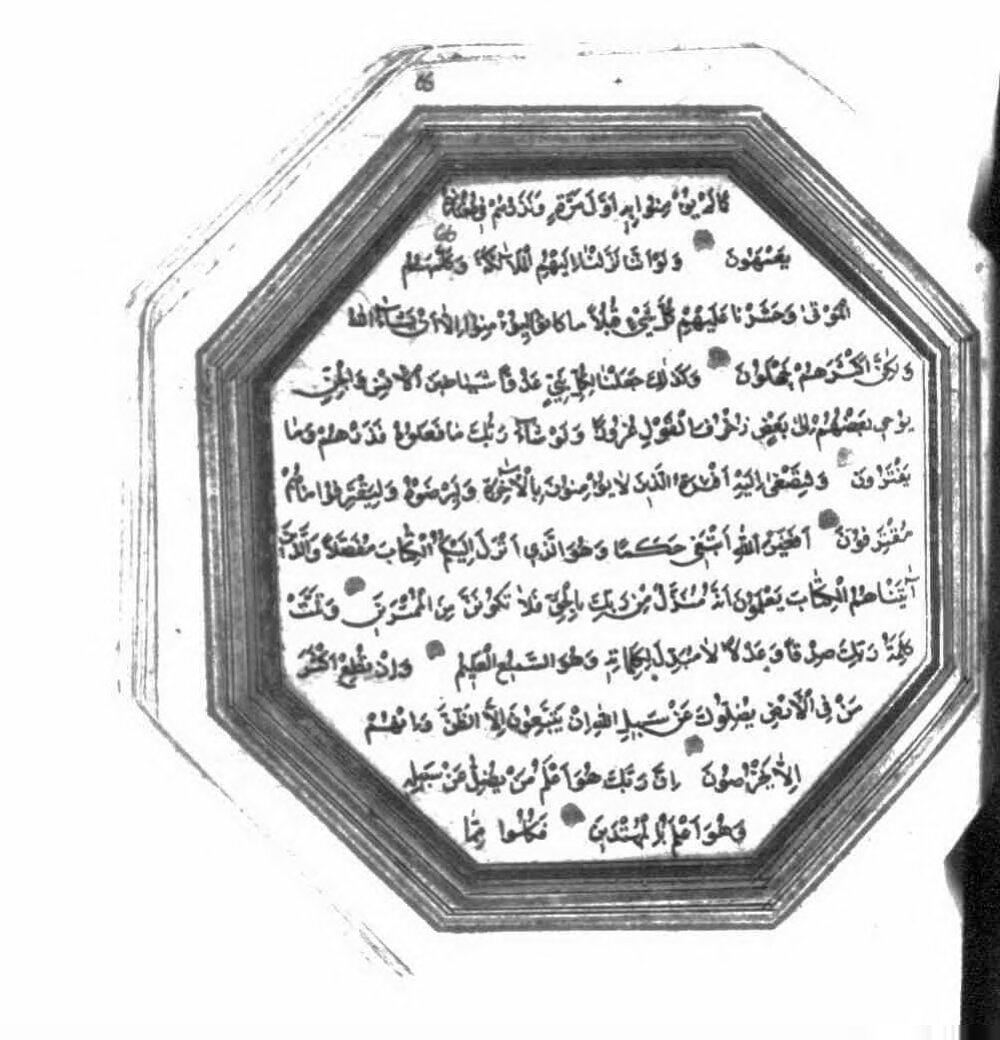 كما لم يؤمنوا به اول مرة ونذرهم في طغيانهم
يعمهون ولو اننا نزلنا اليهم الملائكة وكلمهم
الموتى وحشرنا عليهم كل شيء قبلا ما كانوا ليؤمنوا الا ان يشاء الله
ولكن اكثرهم يجهلون وكذلك جعلنا لكل نبي عدوا شياطين الانس والجن
يوحي بعضهم الى بعض زخرف القول غرورا ولو شاء ربك ما فعلوه فذرهم وما
يفترون ولتصغى اليه افئدة الذين لا يؤمنون بالآخرة وليرضوه وليقترفوا ما هم
مقترفون افغير الله ابتغي حكما وهو الذي انزل اليكم الكتاب مفصلا والذين
آتيناهم الكتاب يعلمون انه منزل من ربك بالحق فلا تكونن من الممترين وتمت
كلمة ربك صدقا وعدلا لا مبدل لكلماته وهو السميع العليم وان تطع اكثر
من في الارض يضلوك عن سبيل الله ان يتبعون الا الظن وان هم
الا يخرصون ان ربك هو اعلم من يضل عن سبيله
وهو اعلم بالمهتدين فكلوا مما